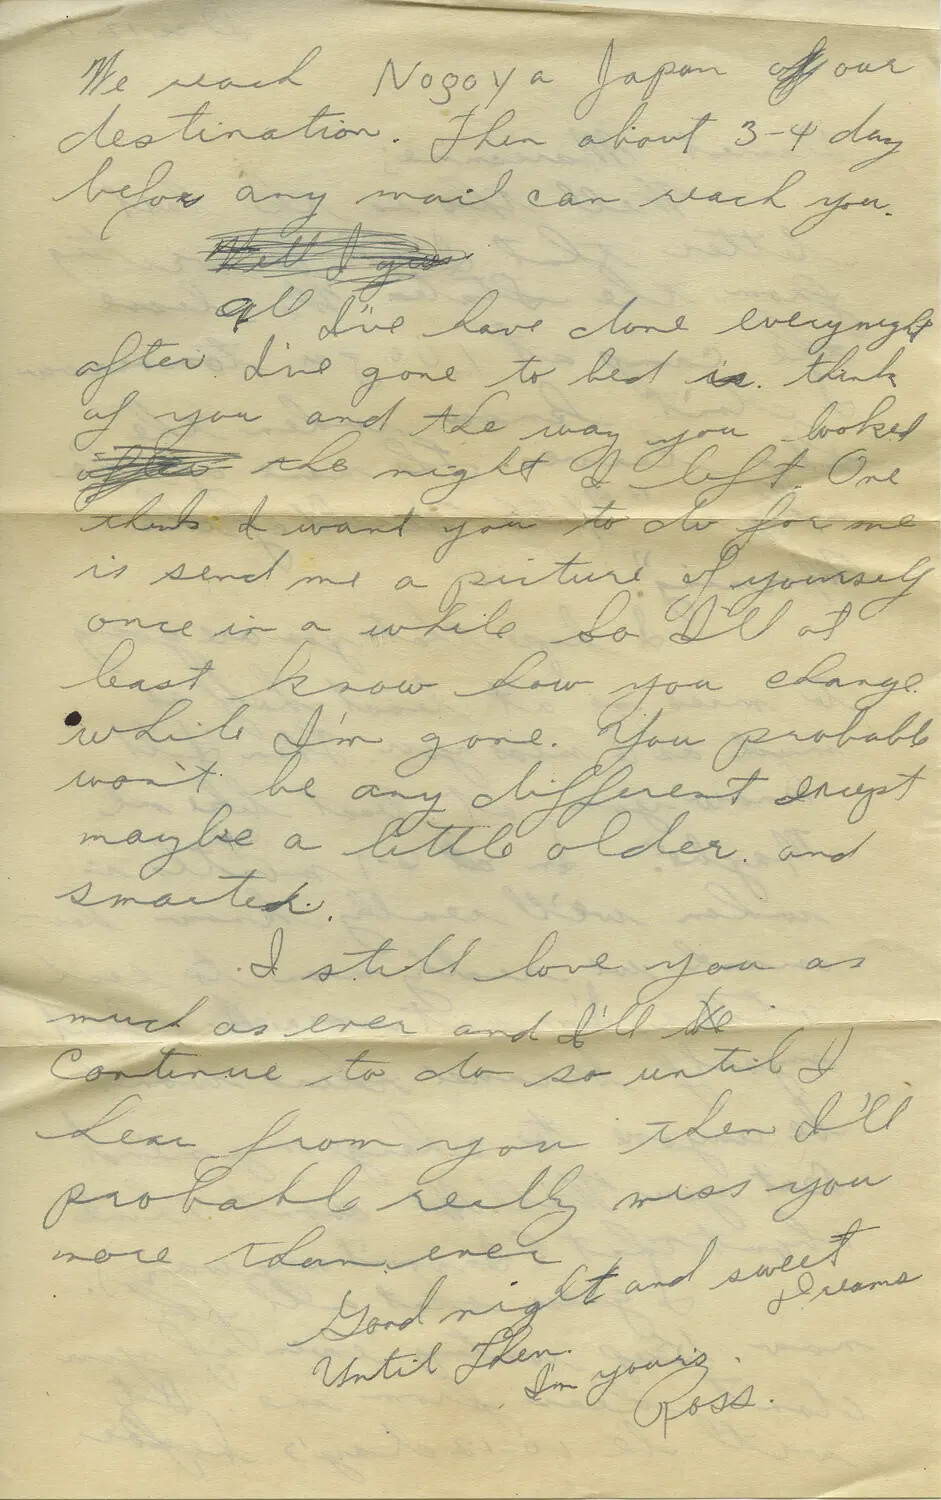 We reach Nogoya Japan our
destination. Then about 3-4 day
before any mail can reach you.
Well I guess
all I've have done everynight
after I've gone to bed is. think
of you and the way you looked
the night I left. One
think I want you to do for me
is send me a picture of yourself
once in a while so I'll at
least know how you change
while I'm gone. You probable
won't be any different except
maybe a little older. and
smarter.
I still love you as
much as ever and I'll
Continue to do so until I
hear from you then I'll
probable really miss you
more than ever
Good night and sweet
dreams
Until Then.
I'm yours.
Ross.